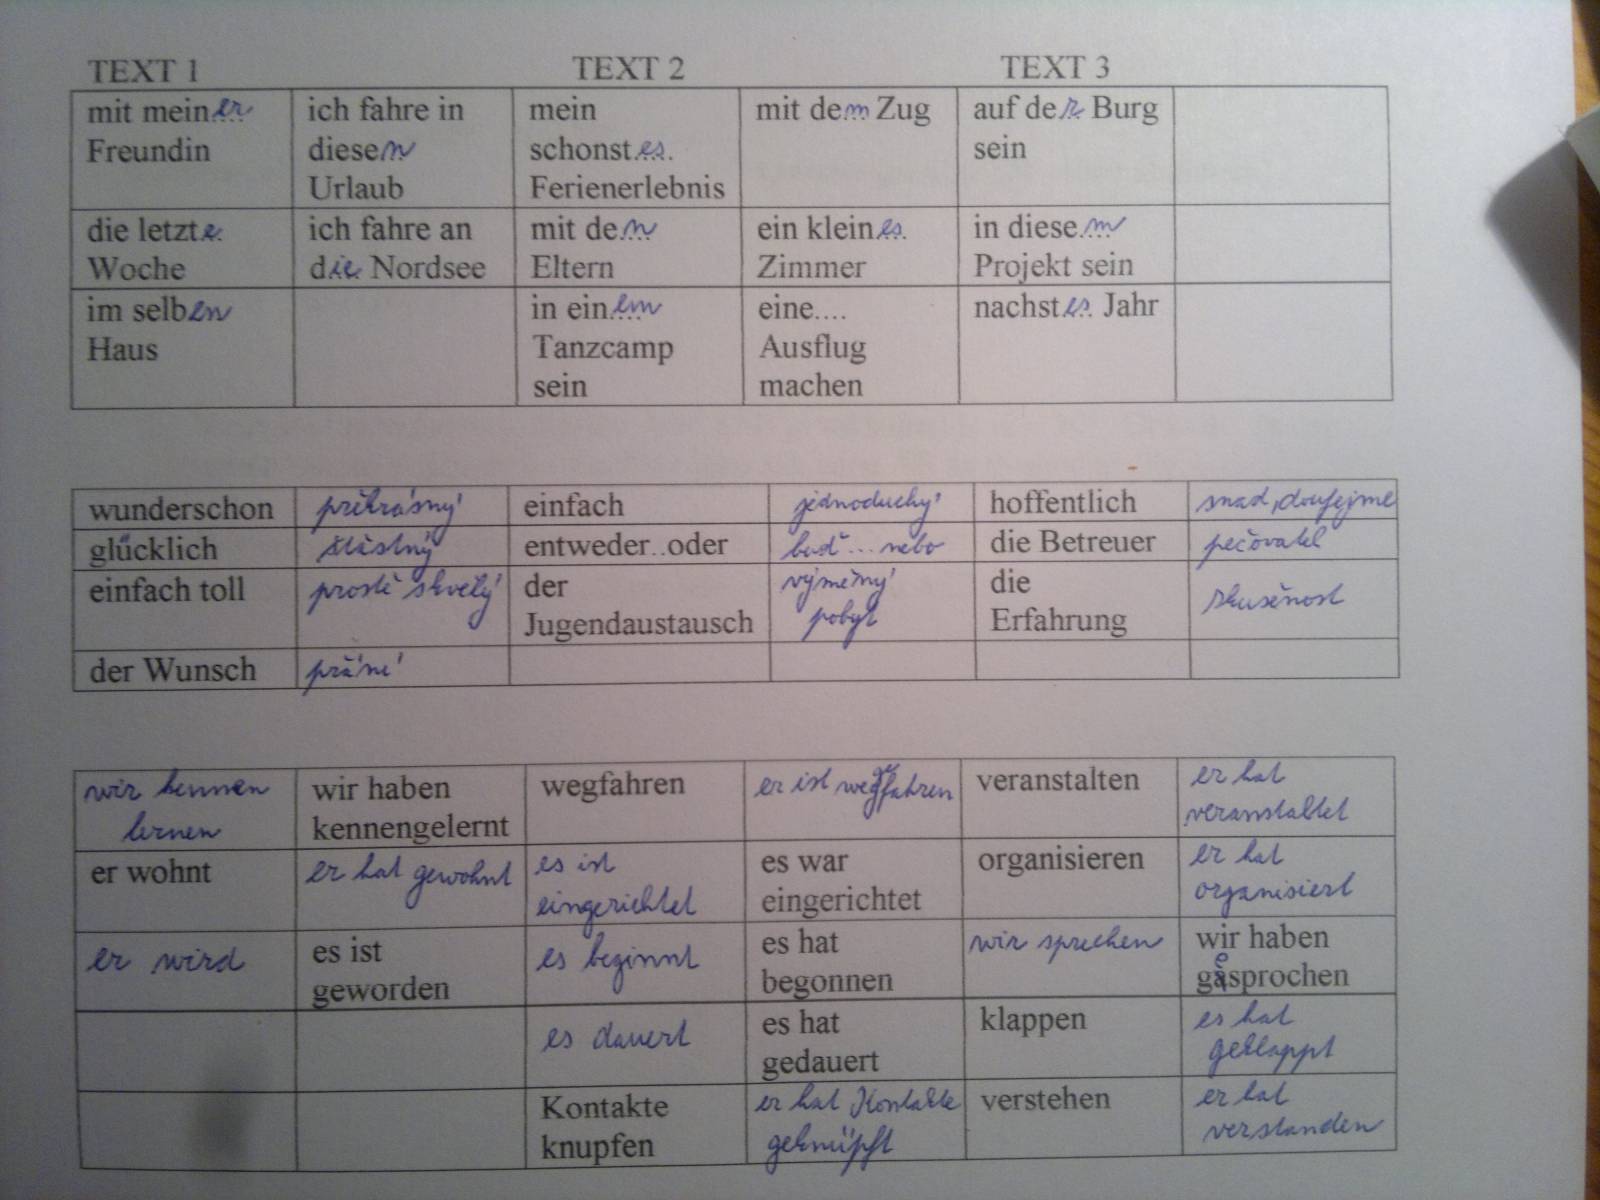 TEXT 1 TEXT 2 TEXT 3
mit meiner Freundin
ich fahre in diesen Urlaub
mein schonst.es. Ferienerlebnis
mit dem Zug
auf der Burg sein
die letzte. Woche
ich fahre an die Nordsee
mit den Eltern
ein kleines. Zimmer
in diesem Projekt sein
im selben Haus
in einem Tanzcamp sein
eine.... Ausflug machen
nachstes. Jahr
wunderschon překrásný einfach jednoduchý hoffentlich snad, doufejme
glücklich šťastný entweder..oder buď... nebo die Betreuer pečovatel
einfach toll prostě skvělý der Jugendaustausch výměnný pobyt die Erfahrung zkušenost
der Wunsch přání
wir kennen lernen
wir haben kennengelernt
wegfahren
er ist weggefahren
veranstalten
er hat veranstaltet
er wohnt
er hat gewohnt
es ist eingerichtet
es war eingerichtet
organisieren
er hat organisiert
er wird
es ist geworden
es beginnt
es hat begonnen
wir sprechen
wir haben gesprochen
es dauert
es hat gedauert
klappen
es hat geklappt
Kontakte knupfen
er hat Kontakte geknüpft
verstehen
er hat verstanden